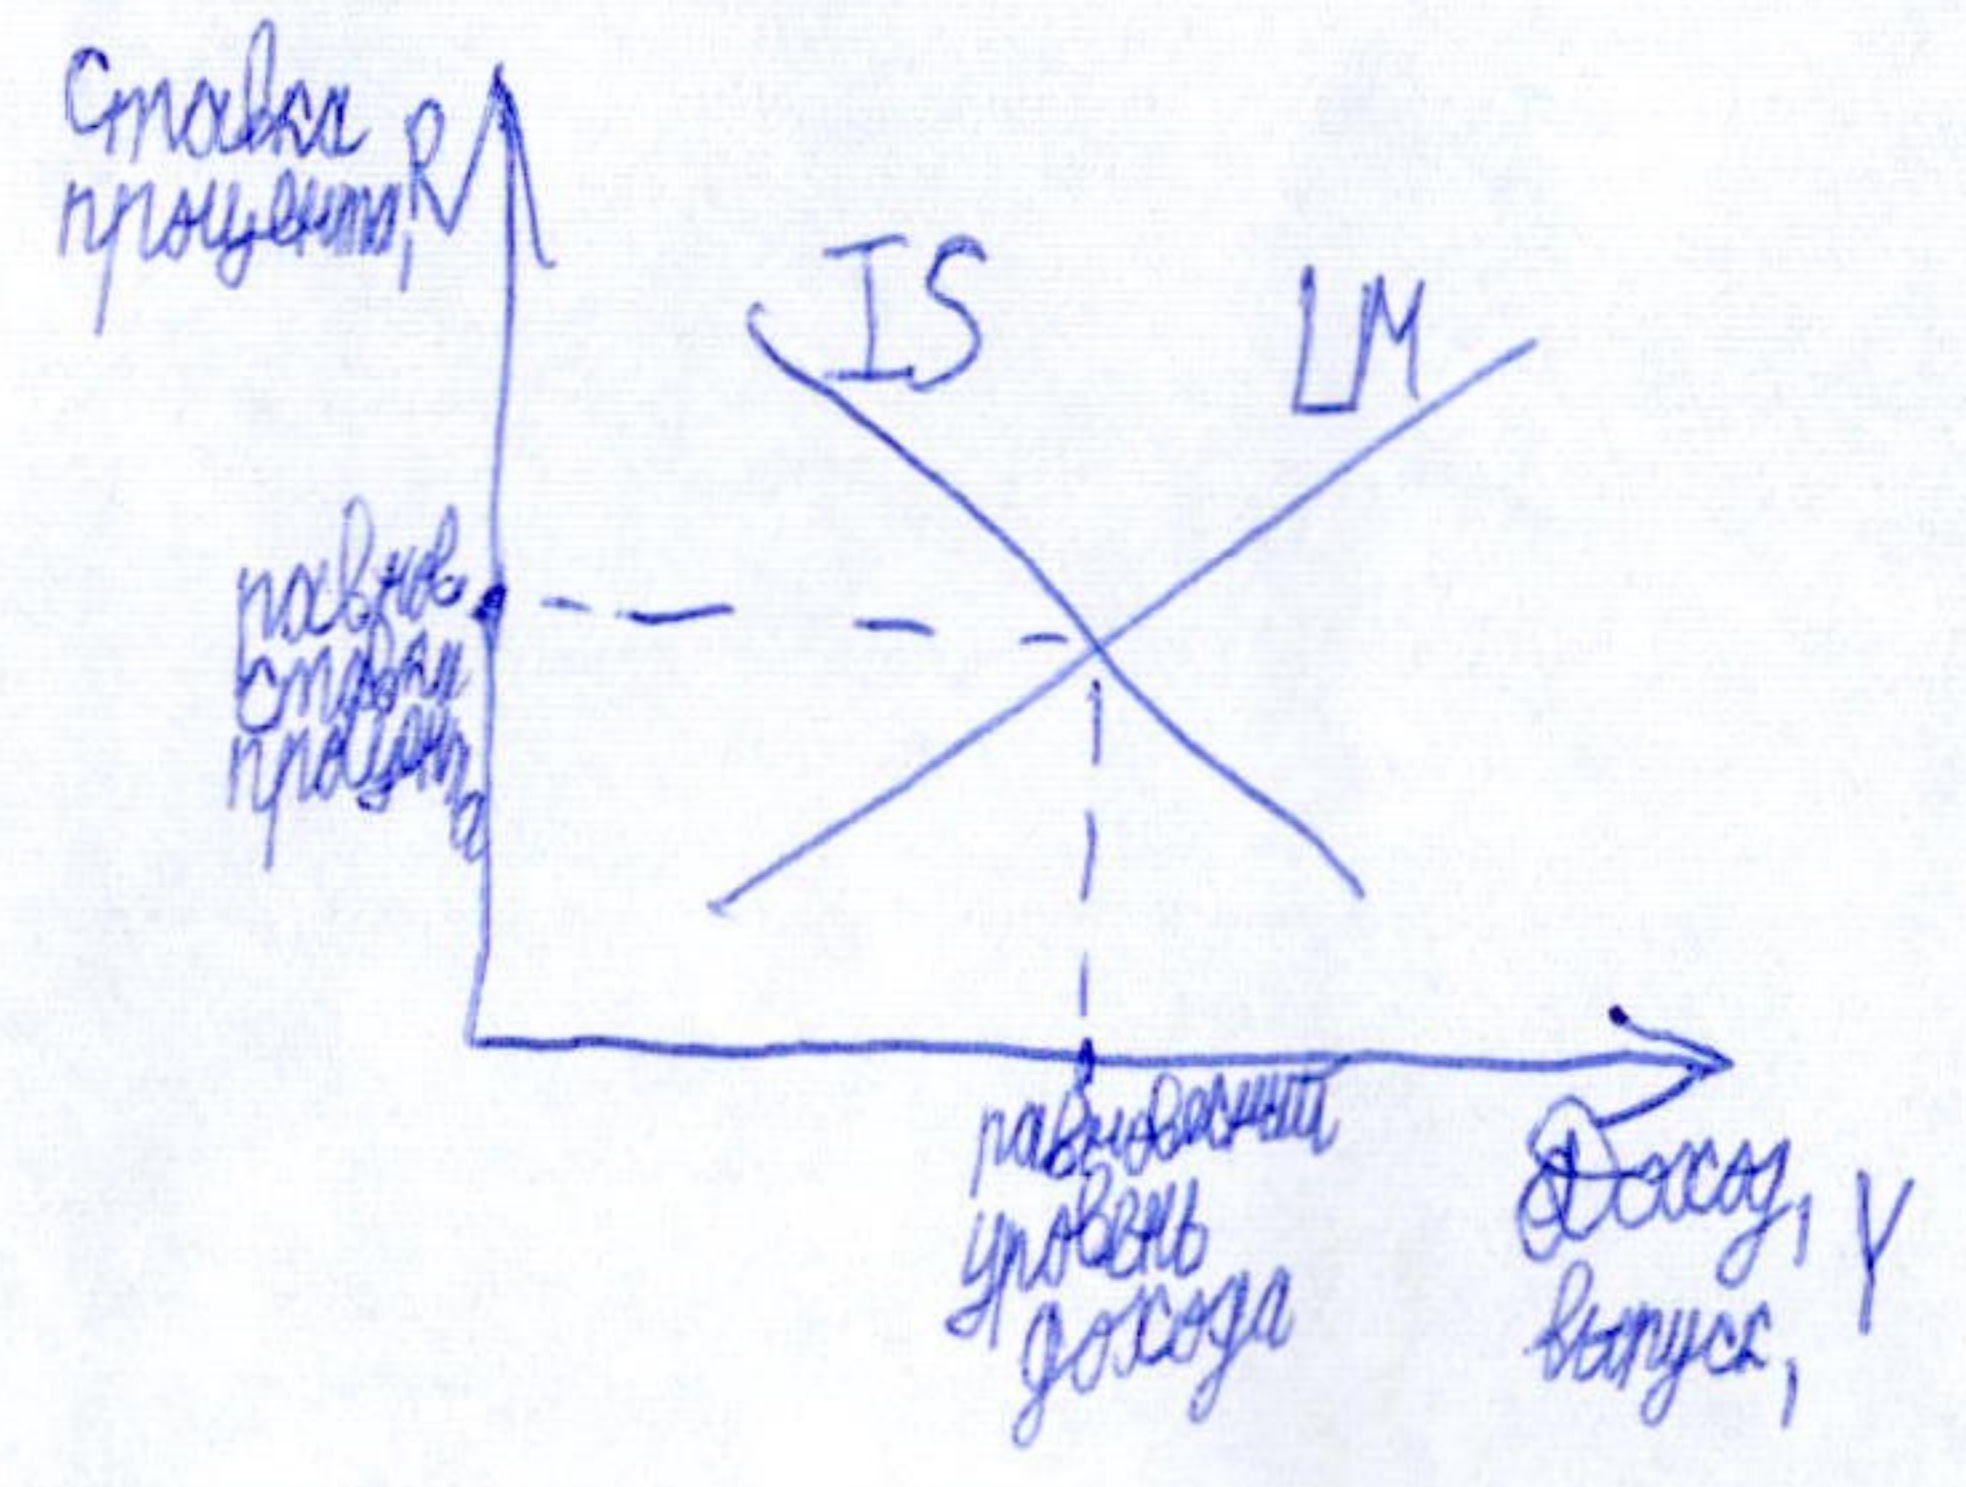 Ставка
процента, R
IS
LM
равнов.
ставка
процента
равновесный
уровень
дохода
Доход, Y
выпуск,